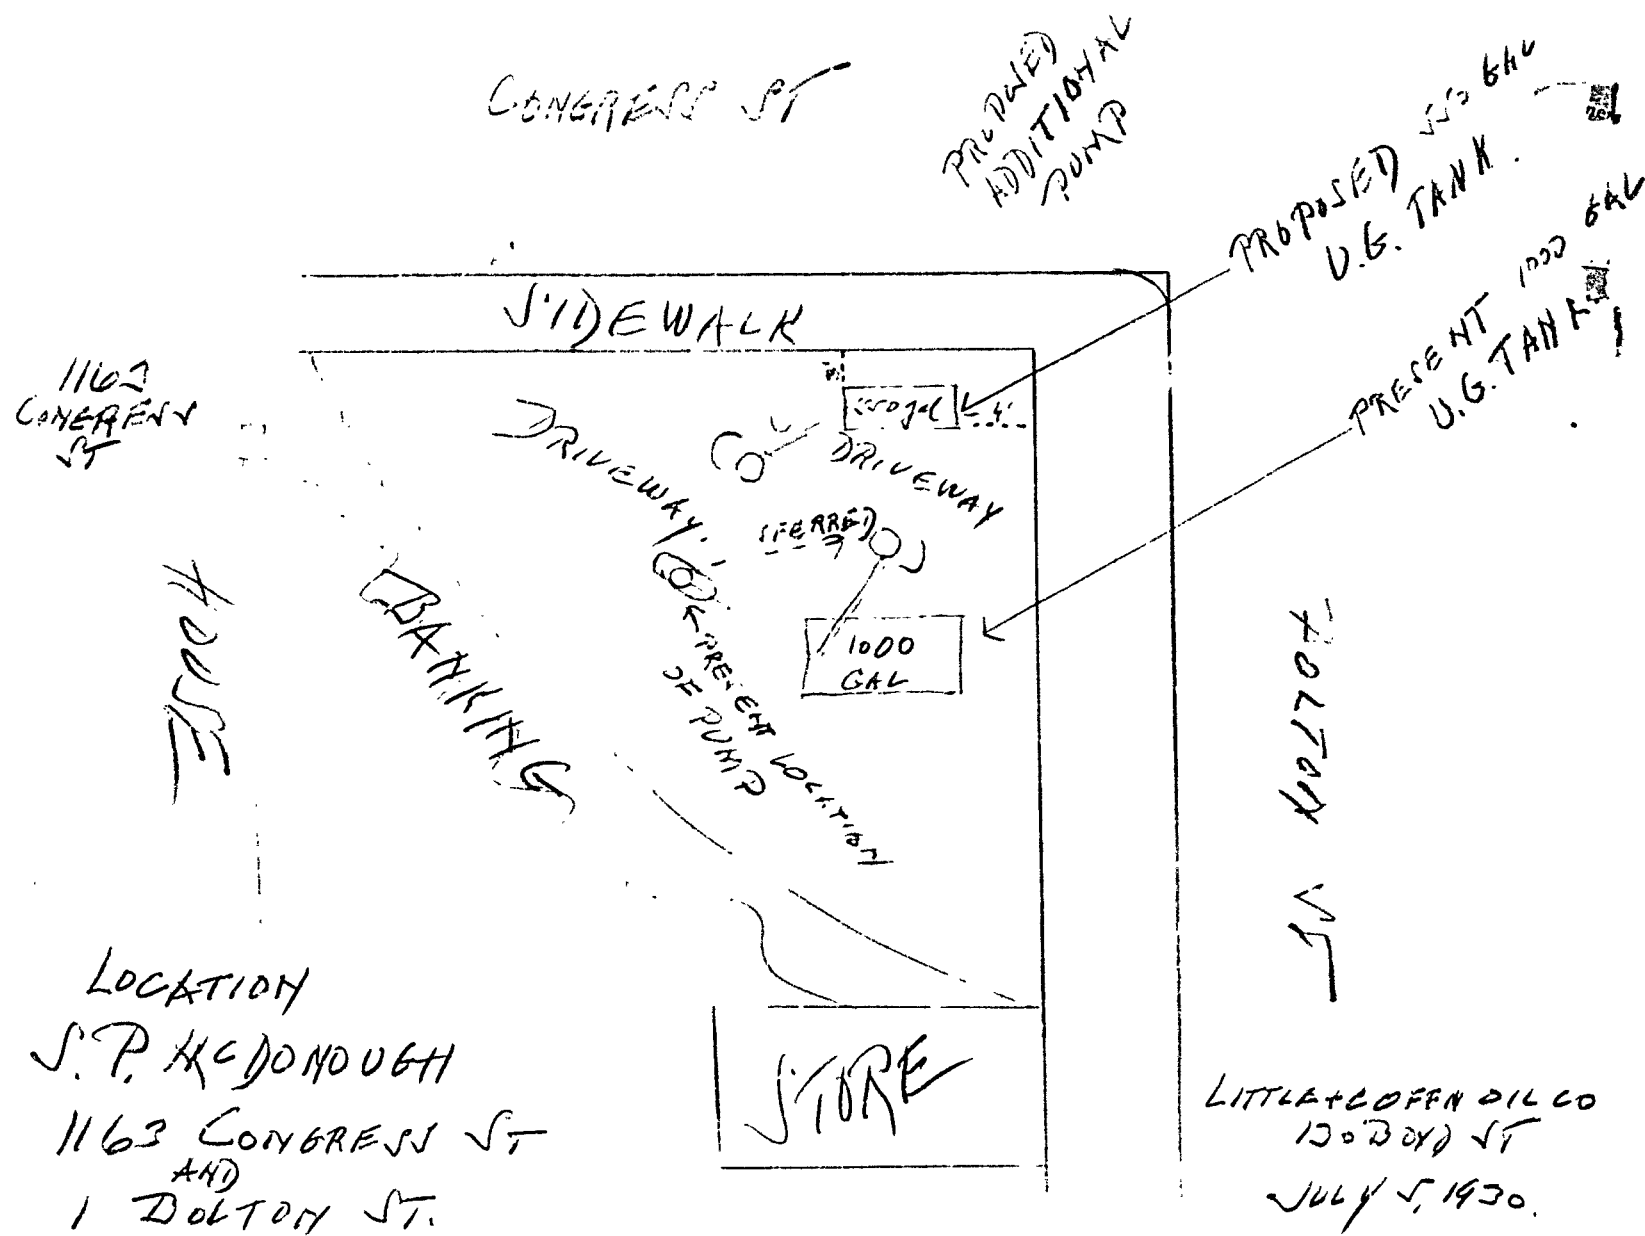 CONGRESS ST
PROPOSED
ADDITIONAL
PUMP
PROPOSED 550 GAL
U.G. TANK.
PRESENT 1000 GAL
U.G. TANK
SIDEWALK
1163
CONGRESS
ST
550 gal
4'
DRIVEWAY
DRIVEWAY
SFERRED
HOUSE
BANKING
PRESENT LOCATION
OF PUMP
1000
GAL
BOLTON ST
STORE
LOCATION
S. P. McDONOUGH
1163 CONGRESS ST
AND
1 BOLTON ST.
LITTLE + COFFEN OIL CO
ST
JULY 5, 1930.